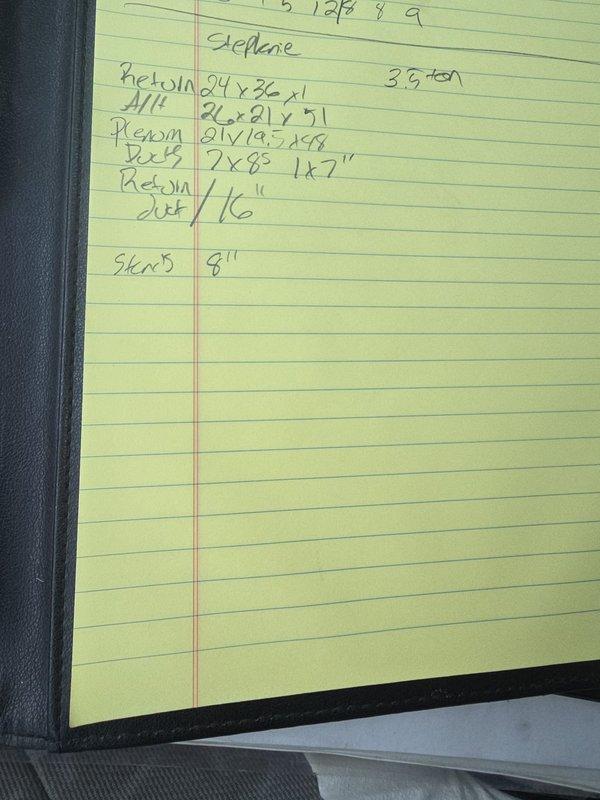 5 12/8 8 9
Stephanie
3.5 ton
Return 24 x 36 x 1
A/H 26 x 21 x 51
Plenum 21 x 19.5 x 48
Ducts 7 x 8s 1 x 7"
Return
duct / 16"
8"